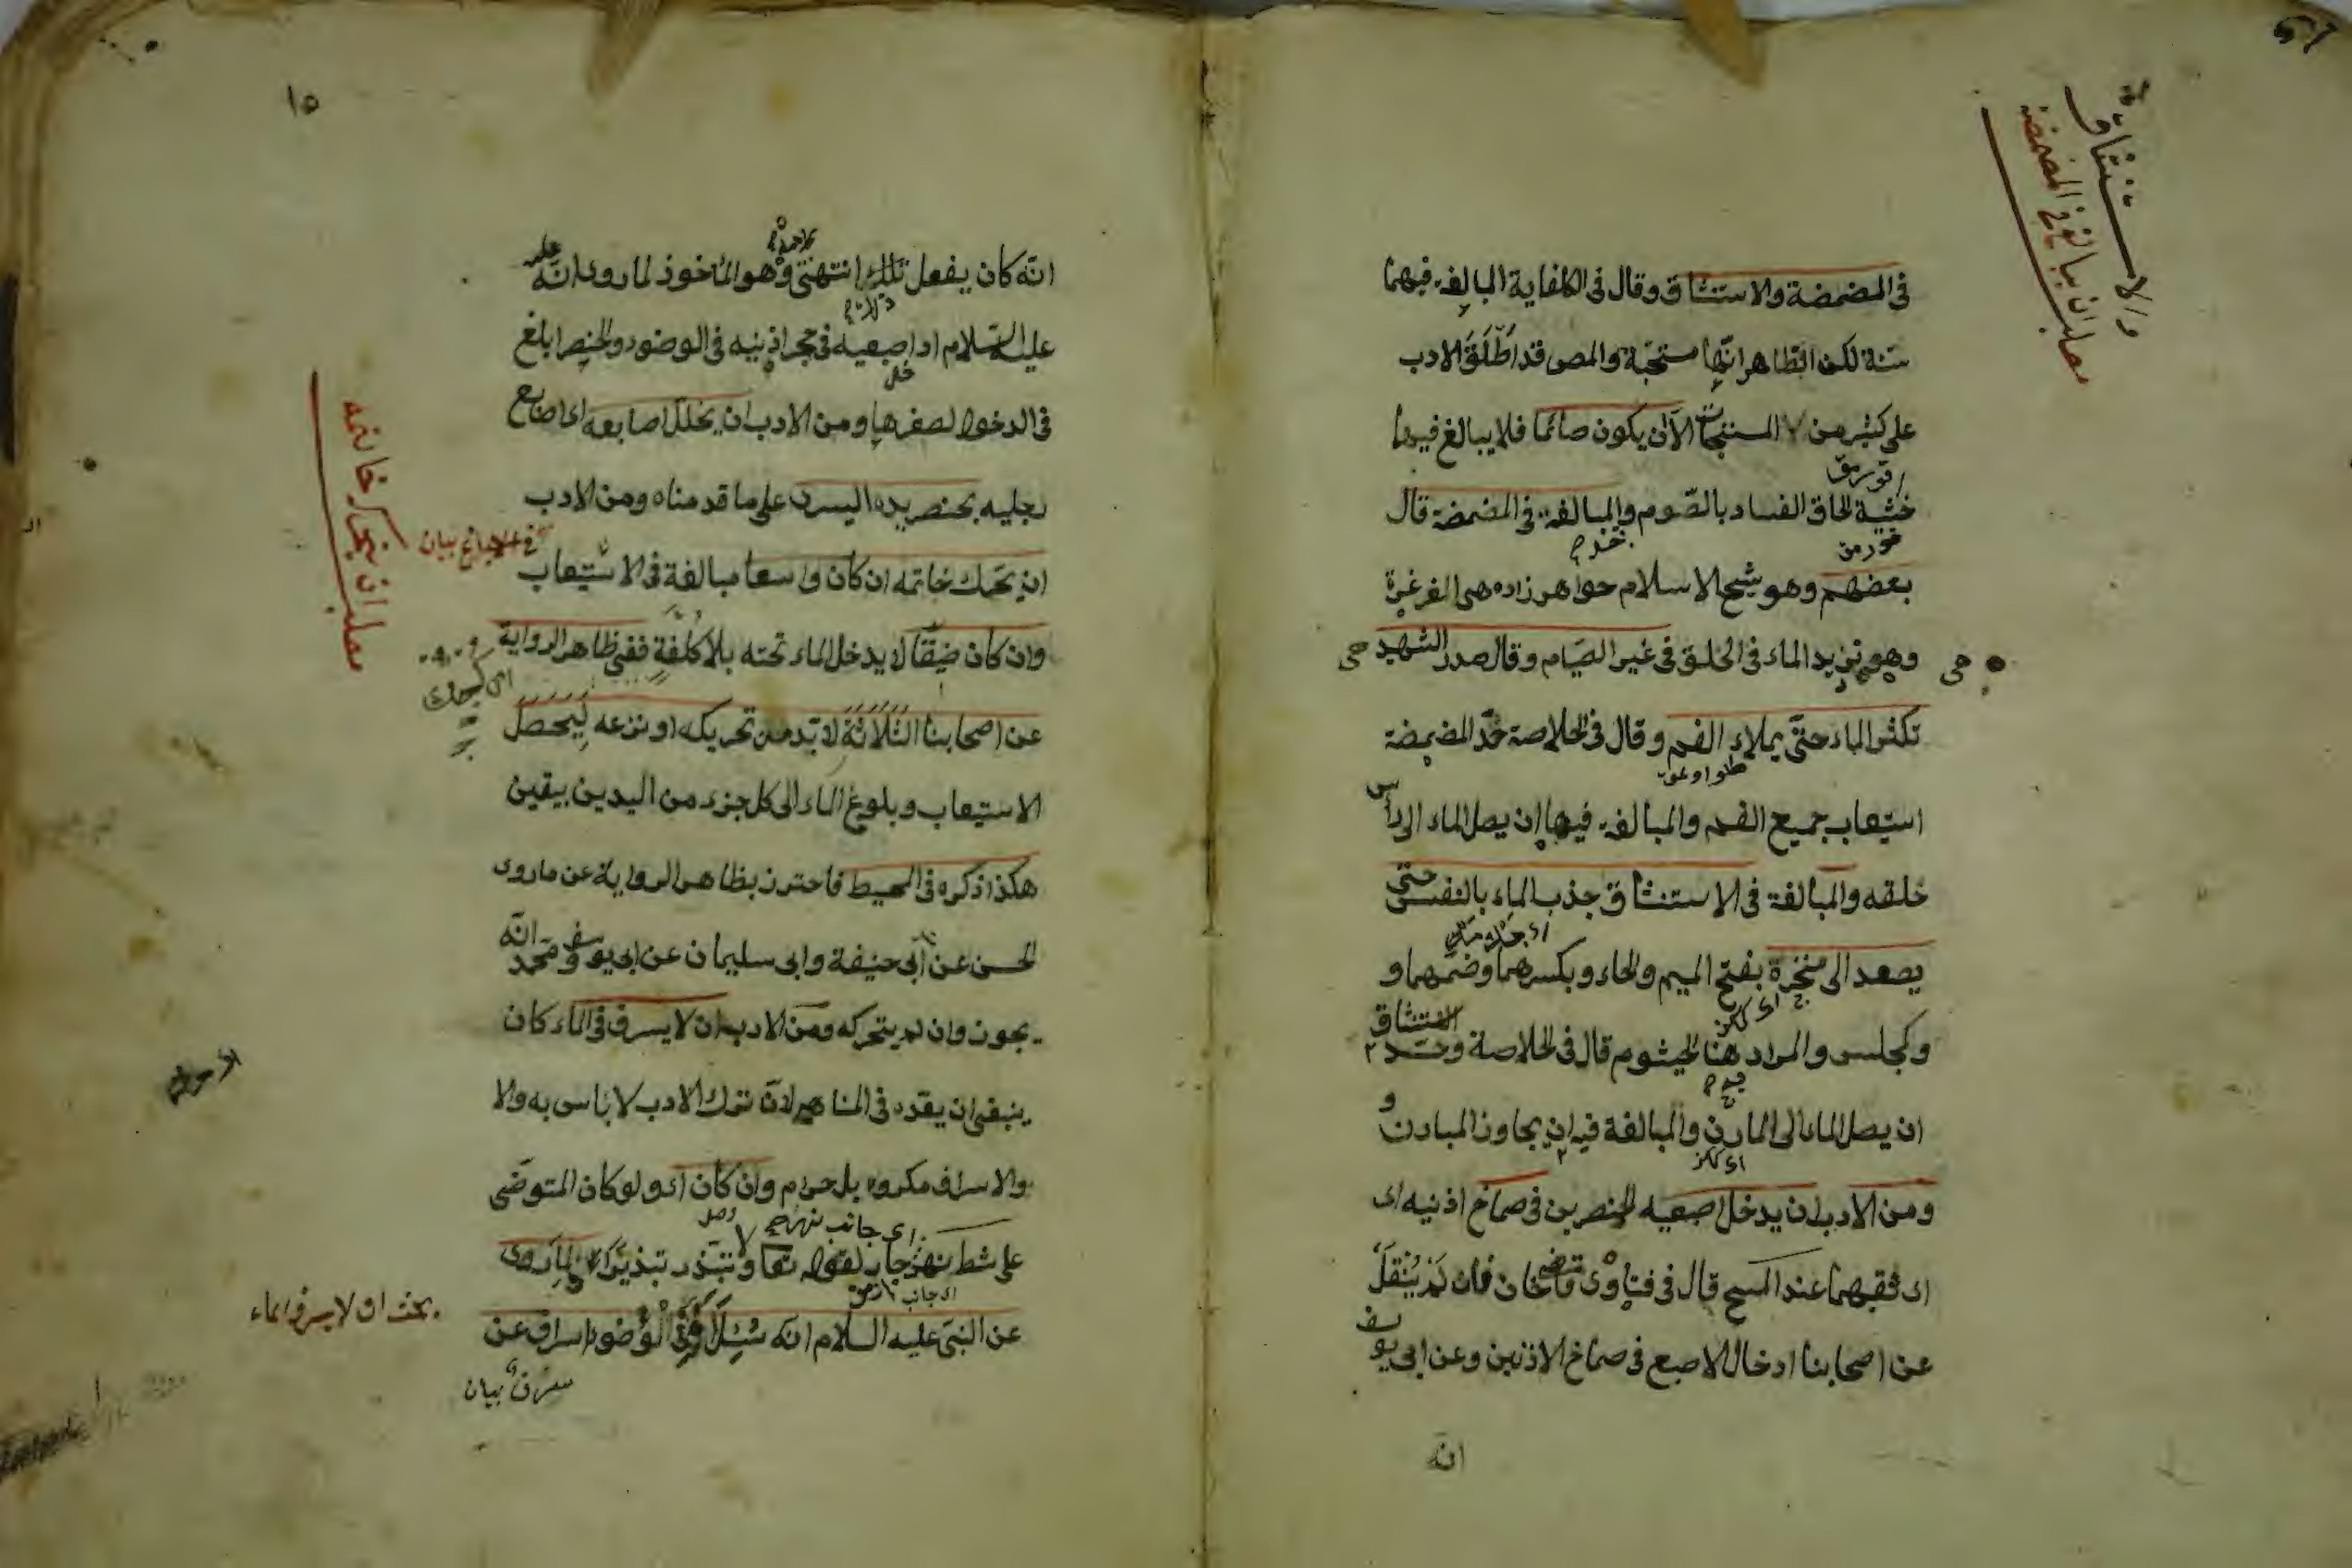 والاستنشاق
مطلب ان يبالغ في المضمضة
في المضمضة والاستنشاق وقال في الكفاية المبالغة فيهما
سنة لكن الظاهر انها مستحبة والمص قد اطلق الادب
على كثير من المستحبات الا ان يكون صائما فلا يبالغ فيهما
خشية لحاق الفساد بالصوم والمبالغة في المضمضة قال
بعضهم وهو شيخ الاسلام خواهر زاده هى الغرغرة
وهو تزيد الماء في الحلق في غير الصيام وقال صدر الشهيد هى
تكثر الماء حتى يملاء الفم وقال في الخلاصة حد المضمضة
استيعاب جميع الفم والمبالغة فيها ان يصل الماء الى رأس
حلقه والمبالغة في الاستنشاق جذب الماء بالنفس حتى
يصعد الى منخره بفتح الميم والخاء وبكسرهما وضمهما و
وكمجلس والمراد هنا الخيشوم قال في الخلاصة وحد الاستنشاق
ان يصل الماء الى المارن والمبالغة فيه ان يجاوز المارن و
ومن الادب ان يدخل اصبعيه الخنصرين في صماخ اذنيه اى
اى ثقبهما عند المسح قال في فتاوى قاضيخان فان لم ينقل
عن اصحابنا ادخال الاصبع في صماخ الاذنين وعن ابى يوسف
انه
١٥
انه كان يفعل تلك انتهى وهو المأخوذ لما روى انه
عليه السلام ادا اصبعيه في حجر اذنيه في الوضوء والخنصر ابلغ
في الدخول لصغرها ومن الادب ان يخلل اصابعه اى اصابع
رجليه بخنصر يده اليسرى على ما قدمناه ومن الادب
ان يحرك خاتمه ان كان واسعا مبالغة في الاستيعاب
وان كان ضيقا لا يدخل الماء تحته بلا كلفة ففى ظاهر الرواية
عن اصحابنا الثلاثة لا بد من تحريكه او نزعه ليحصل
الاستيعاب وبلوغ الماء الى كل جزء من اليدين بيقين
هكذا ذكره في المحيط فاحترز بظاهر الرواية عن ما روى
الحسن عن ابى حنيفة وابى سليمان عن ابى يوسف ومحمد انه
يجوز وان لم يتحركه ومن الادب ان لا يسرف في الماء كان
ينبغى ان يقده في المناهى لان ترك الادب لا باس به والا
والاسراف مكروه بل حرام وان كان اى ولو كان المتوضى
على شط نهر جار لقوله تعا ولا تبذر تبذيرا لما روى
عن النبى عليه السلام انه سئل أفى الوضوء اسراف عن
مطلب ان يحرك خاتمه
بحث ان لا يسرف الماء